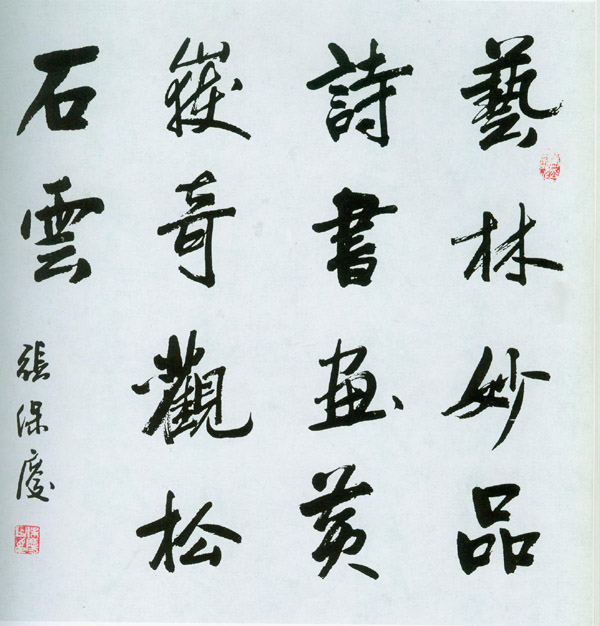 藝林妙品
詩書画黃
嶽奇觀松
石雲
張保慶